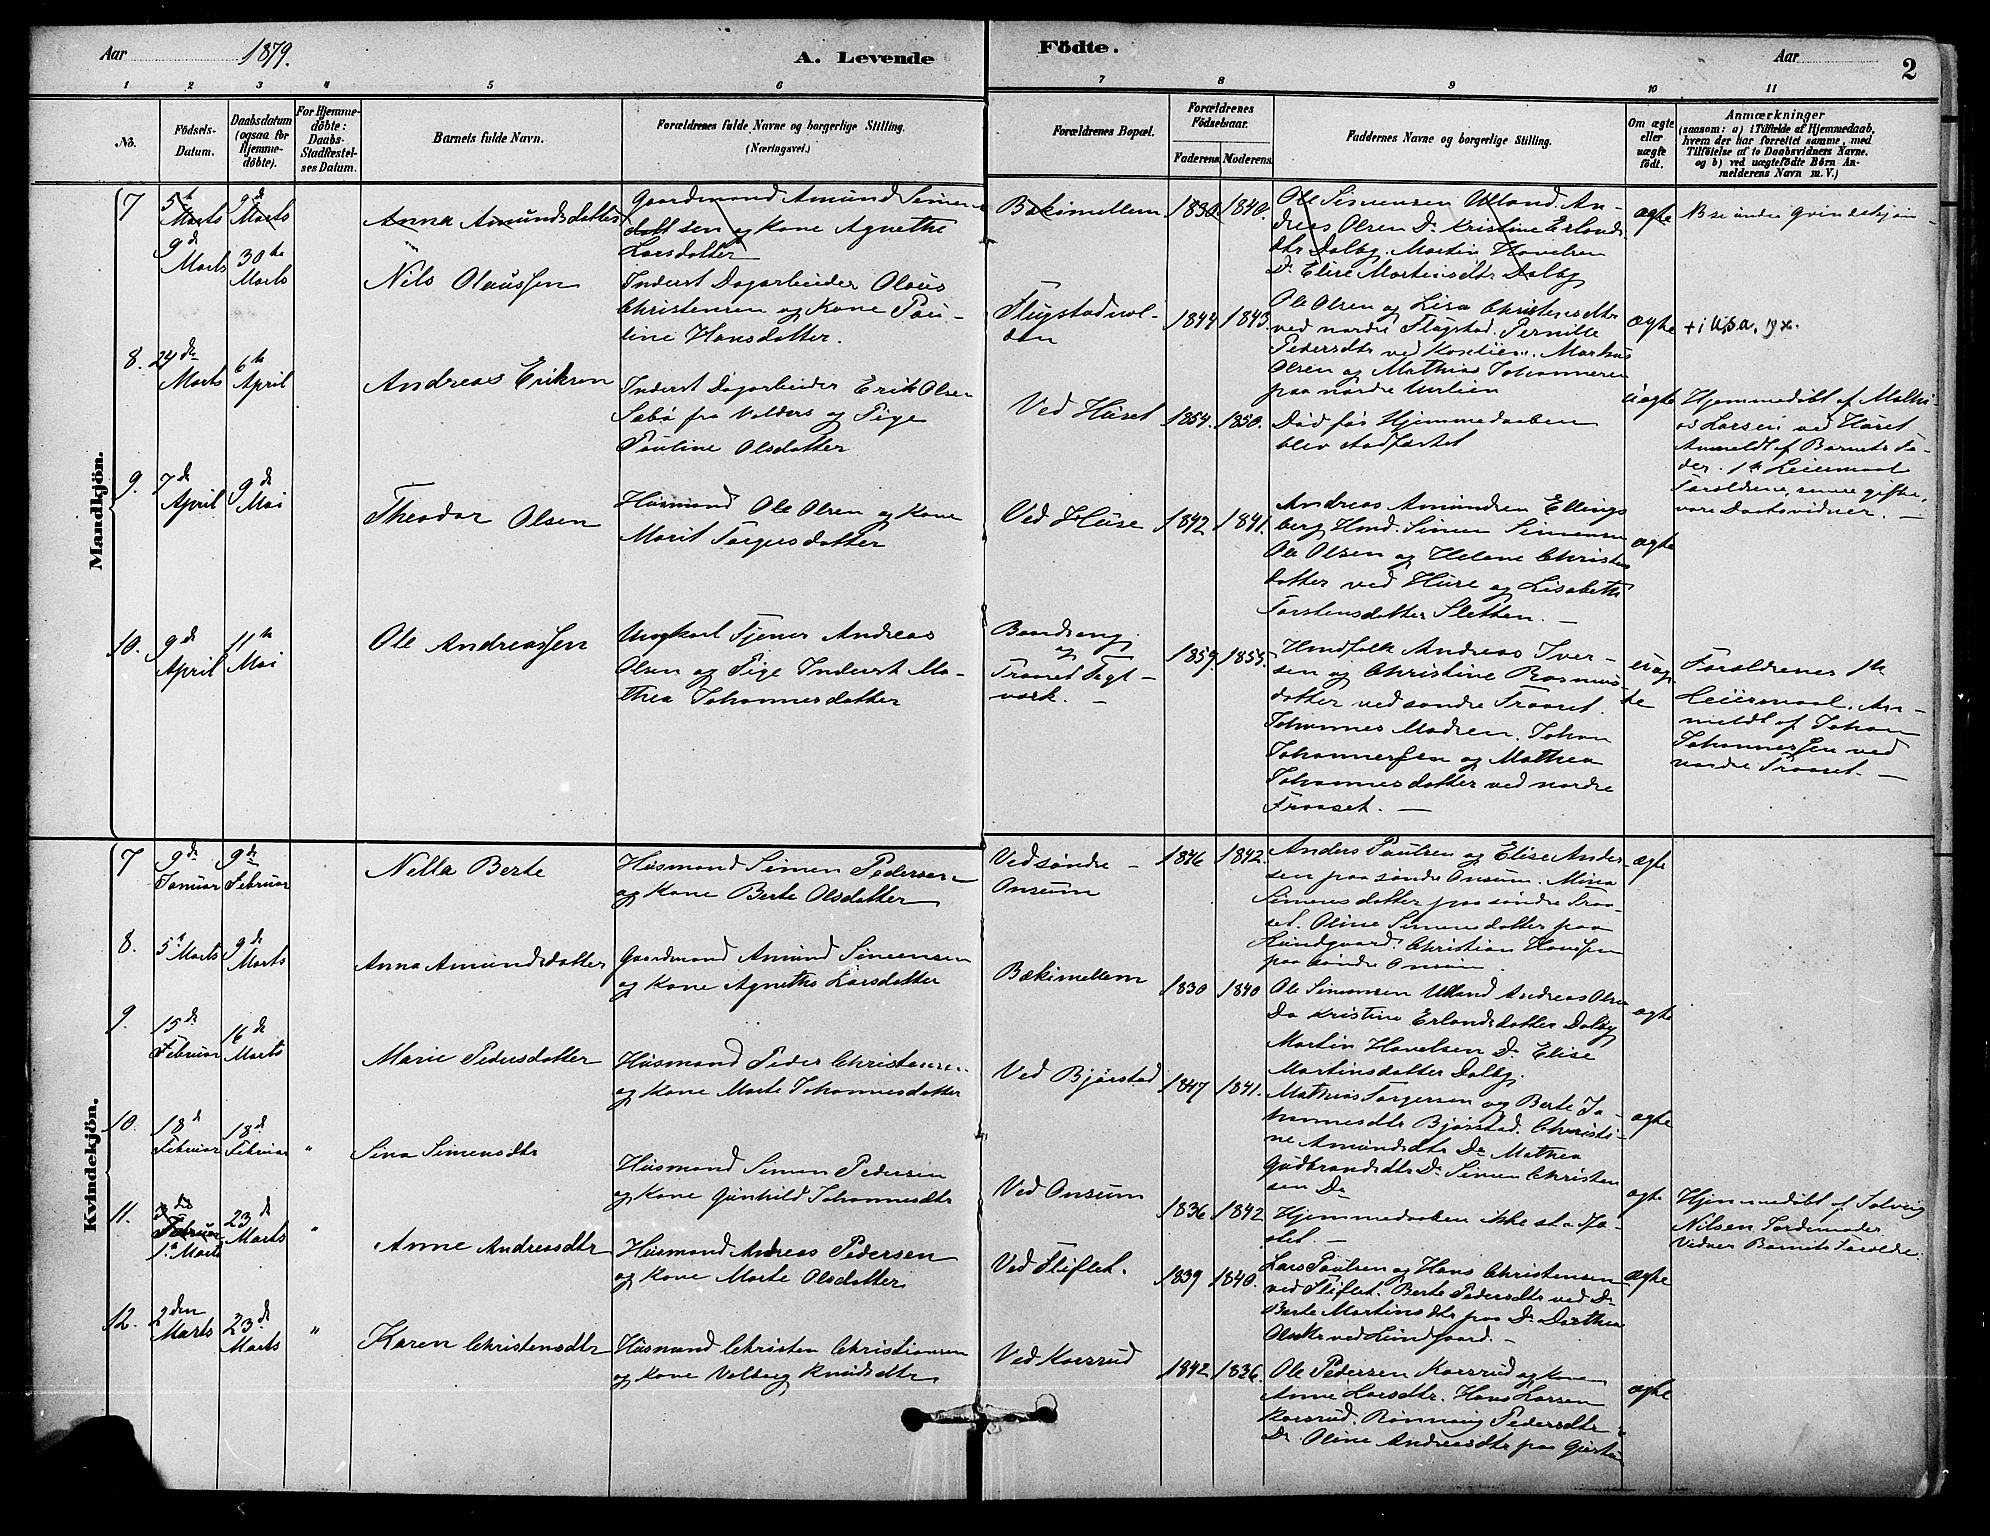 Aar 1879.
A. Levende
Födte.
Aar
2
1 2 3 4 5 6 7 8 9 10 11
No.
Födsels-
Datum.
Daabsdatum
(ogsaa for
Hjemme-
döbte).
For Hjemme-
döbte:
Daabs-
Stadfæstel-
ses Datum.
Barnets fulde Navn.
Forældrenes fulde Navne og borgerlige Stilling.
(Næringsvei.)
Forældrenes Bopæl.
Forældrenes
Födselsaar.
Faderens. Moderens.
Faddernes Navne og borgerlige Stilling.
Om ægte
eller
uægte
født.
Anmærkninger
(saasom: a) i Tilfælde af Hjemmedaab,
hvem der har forrettet samme, med
Tilföielse af to Daabsvidners Navne.
og b) ved uægtefödte Börn An-
melderens Navn m. V.)
Mandkjön.
7
5te
Marts
9de
Marts
Anna Amundsdatter
Gaardmand Amund Simen
sen og Kone Agnethe
Larsdatter
Bækimellem
1830
1840.
Ole Simensen Ulland. An-
dreas Olsen Do Kristine Erlands
dtr Dalby. Martin Havelsen
Do Elise Martinsdtr Dalby
ægte
Nse under Qvindekjøn
9de
Marts
30te
Marts
Nils Olaussen
Inderst Dagarbeider Olaus
Christensen og Kone Pau-
line Hansdatter.
Flugstadvol-
den
1844
1843
Ole Olsen og Lisa Christensdtr
ved nordre Flugstad. Pernille
Pedersdtr ved Koselien. Markus
Olsen og Mathias Johannesen
paa nordre Urlien
ægte
8.
24de
Marts
6te
April
Andreas Eriksen
Inderst Dagarbeider Erik Olsen
Sæbø fra Valders og Pige
Pauline Olsdatter
Ved Huset
1854.
1850.
Død før Hjemmedaaben
blev stadfæstet
uægte
Hjemmedøbt af Mathi-
as Larsen ved Huset
Anmeldt af Barnets Fa-
der. 1te Leiermaal
Forældrene, senere gifte,
vare Daabsvidner. —
9.
7de
April
9de
Mai
Theodor Olsen
Husmand Ole Olsen og Kone
Marit Torgersdatter
Ved Huse
1842
1841.
Andreas Amundsen Ellings
berg Hmd. Simen Simensen
Ole Olsen og Helene Christens
datter ved Huse og Lisabeth
Torstensdatter Sletten. —
ægte
10.
9de
April
11te
Mai
Ole Andreassen
Ungkarl Tjener Andreas
Olsen og Pige Inderst Ma-
thea Johannesdatter
Baadseng
og
Traaset Tegl-
værk. —
1859.
1855.
Hmdfolk Andreas Iver-
sen og Christine Rasmus
datter ved søndre Traaset.
Johannes Madsen. Johan
Johannessen og Mathea
Johannesdatter ved nordre
Traaset. —
uæg-
te
Forældrenes 1te
Leiermaal. An-
meldt af Johan
Johannessen ved
nordre Traaset. —
Kvindekjön.
7
9de
Januar
9de
Februar
Nella Berte
Husmand Simen Pedersen
og Kone Berte Olsdatter
Ved søndre
Onsum
1846
1842.
Anders Paulsen og Elise Ander-
sen paa søndre Onsum. Mina
Simensdatter paa søndre Traa-
set. Oline Simensdatter paa
Lundgaard. Christian Hanssen
paa søndre Onsum.
ægte
8.
5te Marts
9de
Marts
Anna Amundsdatter
Gaardmand Amund Simensen
og Kone Agnethe Larsdatter
Bækimellem
1830
1840
Ole Simensen Ulland Andreas Olsen
Do Kristine Erlandsdatter Dalby
Martin Havelsen Do Elise
Martinsdatter Dalby.
ægte
9.
15de
Februar
16de
Marts
Marie Pedersdatter
Husmand Peder Christensen
og Kone Marte Johannesdatter
Ved Bjørstad
1847
1841.
Mathias Torgersen og Berte Jo-
hannesdtr Bjørstad. Christi-
ne Amundsdtr Do Mathea
Gudbrandsdtr Do Simen Christen
sen Do
ægte
10.
18de
Februar
18de
Februar
"
Sina Simensdtr
Husmand Simen Pedersen
og Kone Gunhild Johannesdtr
Ved Onsum
1836
1842
Hjemmedaaben ikke stadfæ-
stet. —
ægte
Hjemmedøbt af Solveig
Nilsen Jordemoder
Vidner Barnets Forældre.
11.
Februar
1te Marts
23de
Marts
"
Anne Andreasdtr
Husmand Andreas Pedersen
og Kone Marte Olsdatter
Ved Fliflet.
1839
1840.
Lars Paulsen og Hans Christensen
ved Fliflet. Berte Pedersdtr ved Do
Berte Martinsdtr paa Do Dorthea
Olsdtr ved Lundgaard. —
ægte
12.
2den
Marts
23de
Marts
"
Karen Christensdtr
Husmand Christen Christiansen
og Kone Valborg Knudsdtr
Ved Korsrud
1842
1836.
Ole Pedersen Korsrud og Kone
Anne Larsdtr. Hans Larsen
Korsrud. Rønnaug Pedersdtr
Do Oline Andreasdtr paa
ægte